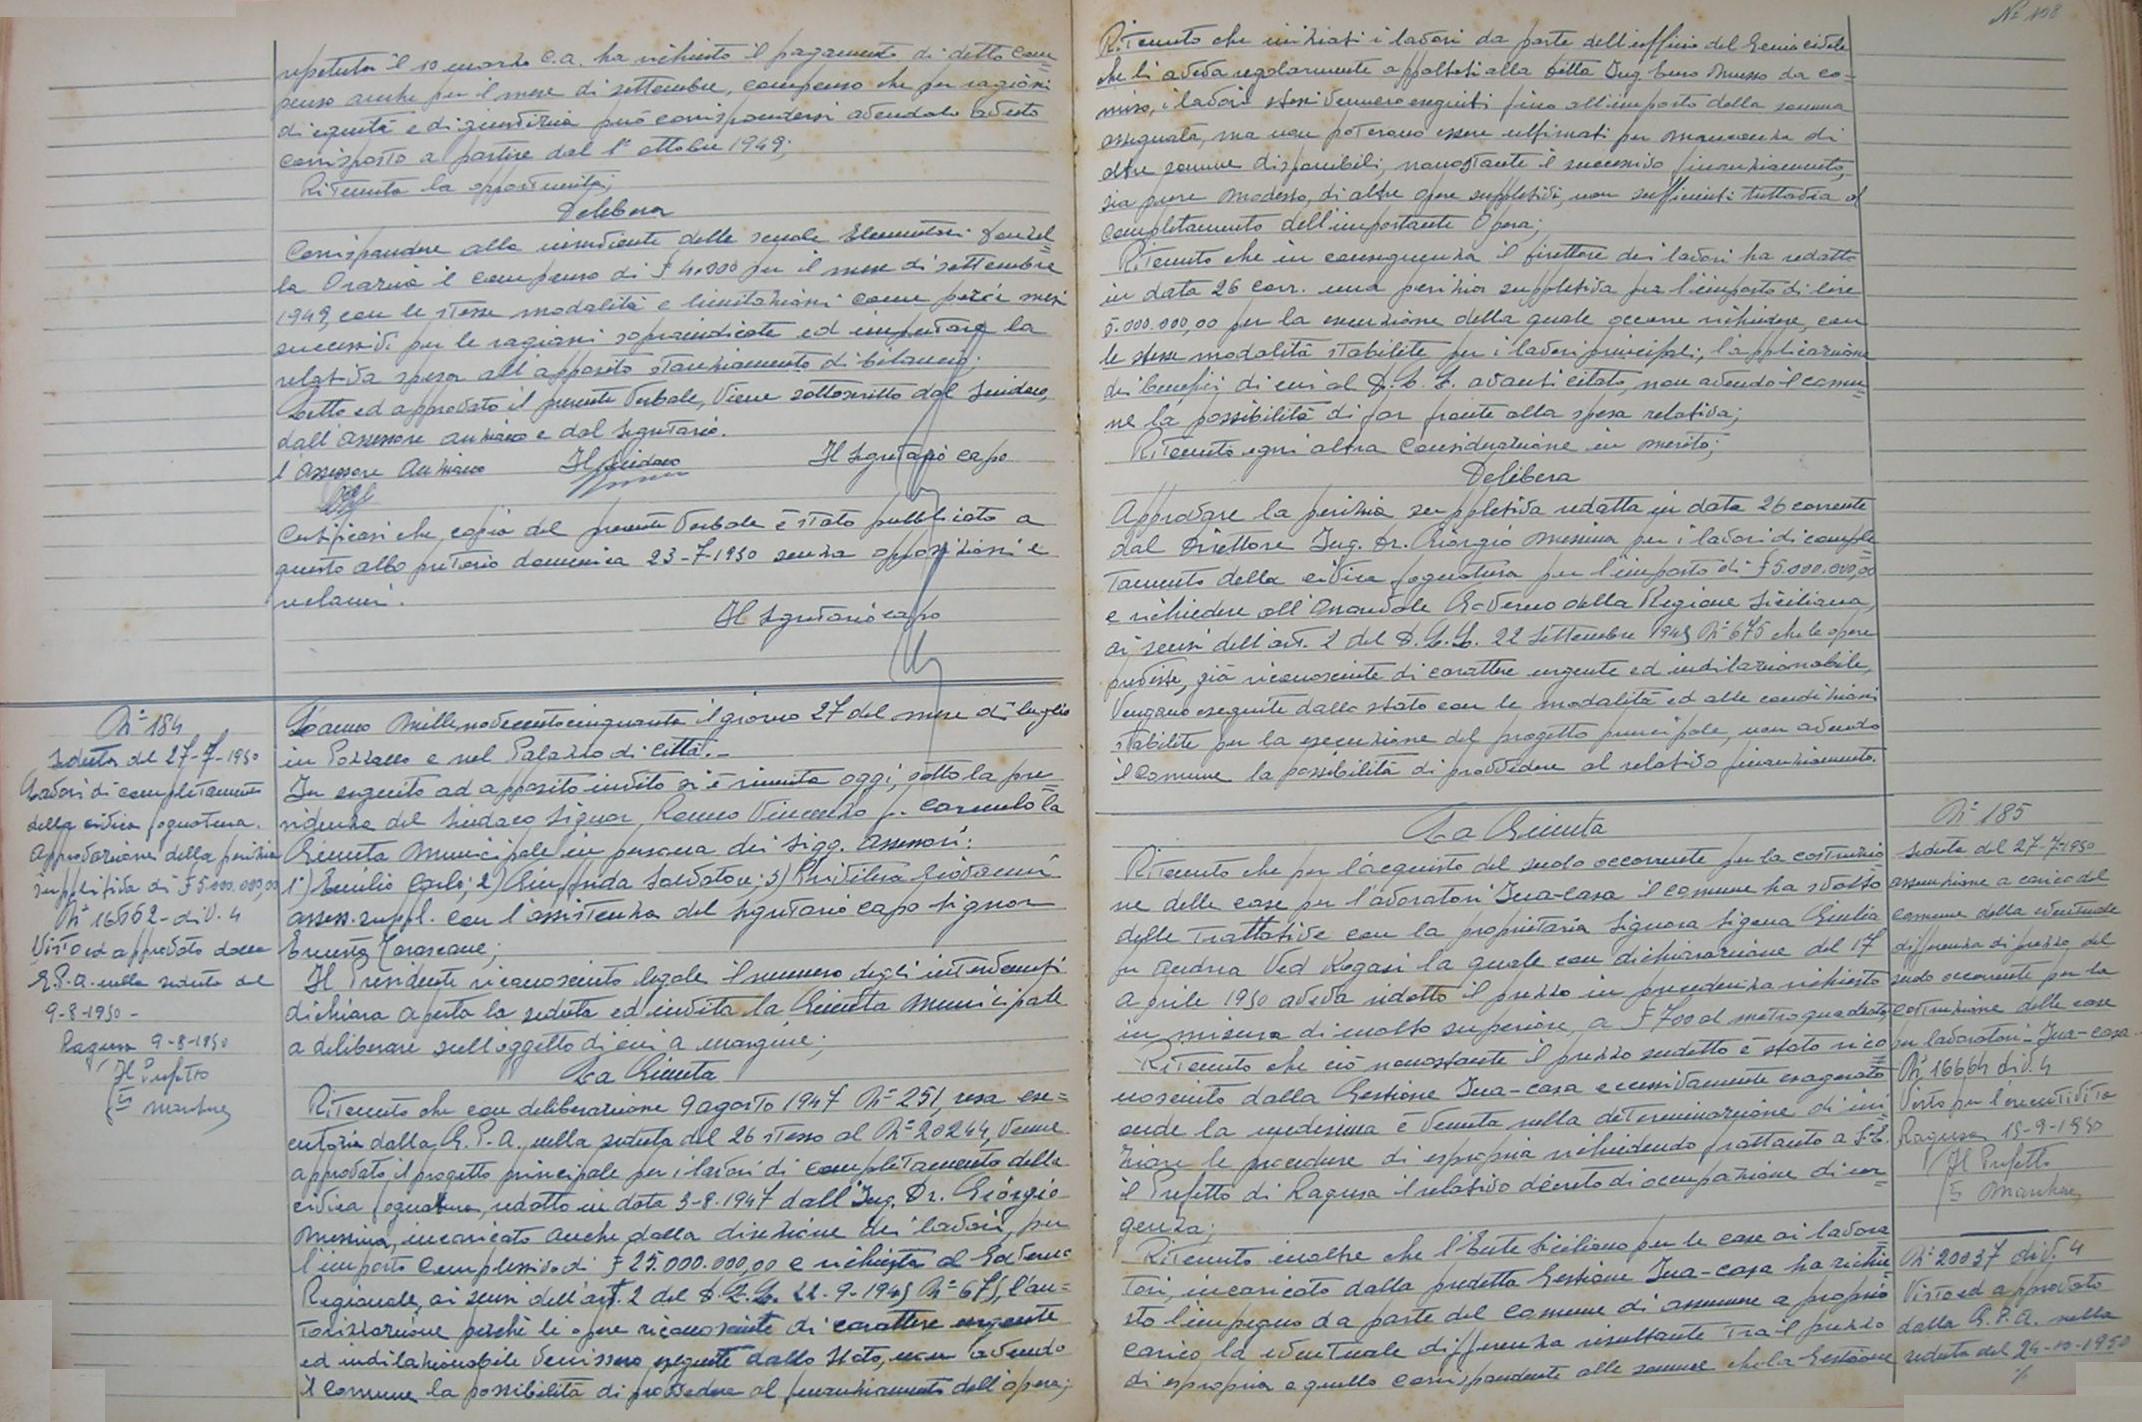 ripetuta il 10 marzo c.a. ha richiesto il pagamento di detto com=
penso anche per il mese di settembre, compenso che per ragioni
di equità e di giustizia può corrispondersi avendolo
corrisposto a partire dal 1° ottobre 1949;
Ritenuta la opportunità;
Delibera
Corrispondere alla inserviente delle scuole Elementari
la Orazia il compenso di £ 4.000 per il mese di settembre
1949, con le stesse modalità e limitazioni come per i mesi
successivi per le ragioni sopraindicate ed imputare la
relativa spesa all'apposito stanziamento di bilancio;
Letto ed approvato il presente verbale, viene sottoscritto dal Sindaco,
dall'assessore anziano e dal Segretario.
l'Assessore Anziano Il Sindaco Il Segretario capo
Certificasi che copia del presente verbale è stato pubblicato a
questo albo pretorio domenica 23-7-1950 senza opposizioni e
reclami.
Il Segretario capo
N° 184
Seduta del 27-7-1950
Lavori di completamento
della civica fognatura.
Approvazione della perizia
suppletiva di £ 5.000.000,00
N° 16562 - div. 4
Visto ed approvato dalla
G.P.A. nella seduta del
9-8-1950 -
Ragusa 9-8-1950
Il Prefetto
L'anno Millenovecentocinquanta il giorno 27 del mese di luglio
in Pozzallo e nel Palazzo di Città.-
In seguito ad apposito invito si è riunita oggi, sotto la pre=
sidenza del Sindaco Signor Vincenzo fu Carmelo la
Giunta Municipale in persona dei Sigg. Assessori:
1°) Emilio Carlo; 2) Giuffrida Salvatore; 3) Privitera Giovanni
assess. suppl. con l'assistenza del Segretario capo Signor
Ernesto
Il Presidente riconosciuto legale il numero degli intervenuti
dichiara aperta la seduta ed invita la Giunta Municipale
a deliberare sull'oggetto di cui a margine;
La Giunta
Ritenuto che con deliberazione 9 agosto 1947 N° 251, resa ese=
cutoria dalla G.P.A. nella seduta del 26 stesso al N° 20244, venne
approvato il progetto principale per i lavori di completamento della
civica fognatura, redatto in data 3-8-1947 dall'Ing. Dr. Giorgio
Messina, incaricato anche della direzione dei lavori, per
l'importo complessivo di £ 25.000.000,00 e richiesta al Governo
Regionale, ai sensi dell'art. 2 del D.L.L. 22-9-1945 N° 675, l'au=
torizzazione perché le opere riconosciute di carattere urgente
ed indilazionabile venissero eseguite dallo Stato, non avendo
il Comune la possibilità di provvedere al finanziamento dell'opera;
N° 108
Ritenuto che iniziati i lavori da parte dell'ufficio del Genio civile
che li aveva regolarmente appaltati alla Ditta Ing. Musso da Co=
miso, i lavori stessi vennero eseguiti fino all'importo della somma
assegnata, ma non poterono essere ultimati per mancanza di
altre somme disponibili, nonostante il successivo finanziamento,
sia pure modesto, di altre opere suppletive, non sufficienti tuttavia al
completamento dell'importante Opera;
Ritenuto che in conseguenza il Direttore dei lavori ha redatto
in data 26 corr. una perizia suppletiva per l'importo di lire
5.000.000,00 per la esecuzione della quale occorre richiedere, con
le stesse modalità stabilite per i lavori principali, l'applicazione
dei benefici di cui al D.L.L. avanti citato, non avendo il comu=
ne la possibilità di far fronte alla spesa relativa;
Ritenuto ogni altra considerazione in merito;
Delibera
Approvare la perizia suppletiva redatta in data 26 corrente
dal Direttore Ing. Dr. Giorgio Messina per i lavori di comple=
tamento della civica fognatura per l'importo di £ 5.000.000,00
e richiedere all'Onorevole Governo della Regione Siciliana,
ai sensi dell'art. 2 del D.L.L. 22 Settembre 1945 N° 675 che le opere
predette, già riconosciute di carattere urgente ed indilazionabile,
vengano eseguite dallo Stato con le modalità ed alle condizioni
stabilite per la esecuzione del progetto principale, non avendo
il Comune la possibilità di provvedere al relativo finanziamento.
La Giunta
Ritenuto che per l'acquisto del suolo occorrente per la costruzio=
ne delle case per lavoratori Ina-casa il Comune ha svolto
delle trattative con la proprietaria Signora Giulia
fu Andrea Ved. Rogasi la quale con dichiarazione del 17
aprile 1950 aveva ridotto il prezzo in precedenza richiesto
in misura di molto superiore, a £ 700 al metro quadrato;
Ritenuto che ciò nonostante il prezzo suddetto è stato rico=
nosciuto dalla Gestione Ina-casa eccessivamente esagerato
onde la medesima è venuta nella determinazione di ini=
ziare le procedure di esproprio richiedendo frattanto a S.E.
il Prefetto di Ragusa il relativo decreto di occupazione di ur=
genza;
Ritenuto inoltre che l'Ente Siciliano per le case ai lavora=
tori, incaricato dalla predetta Gestione Ina-casa ha richie=
sto l'impegno da parte del Comune di assumere a proprio
carico la eventuale differenza risultante tra il prezzo
di esproprio e quello corrispondente alle somme che la Gestione
N° 185
Seduta del 27-7-1950
assunzione a carico del
comune della eventuale
differenza di prezzo del
suolo occorrente per la
costruzione delle case
per lavoratori - Ina-casa.
N° 16664 div. 4
Visto per l'esecutività
Ragusa 15-9-1950
Il Prefetto
N° 20037 div. 4
Visto ed approvato
dalla G.P.A. nella
seduta del 24-10-1950